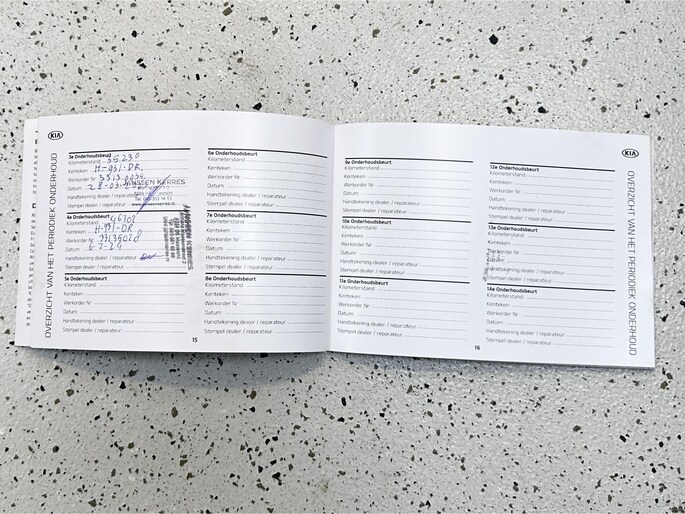 KIA
OVERZICHT VAN HET PERIODIEK ONDERHOUD
3e Onderhoudsbeurt
Kilometerstand 35230
Kenteken H-931-DR
Werkorder Nr
Datum
Handtekening dealer / reparateur
Stempel dealer / reparateur
JANSSEN KERRES
4e Onderhoudsbeurt
Kilometerstand
Kenteken H-931-DR
Werkorder Nr
Datum
Handtekening dealer / reparateur
Stempel dealer / reparateur
5e Onderhoudsbeurt
Kilometerstand
Kenteken
Werkorder Nr
Datum
Handtekening dealer / reparateur
Stempel dealer / reparateur
6e Onderhoudsbeurt
Kilometerstand
Kenteken
Werkorder Nr
Datum
Handtekening dealer / reparateur
Stempel dealer / reparateur
7e Onderhoudsbeurt
Kilometerstand
Kenteken
Werkorder Nr
Datum
Handtekening dealer / reparateur
Stempel dealer / reparateur
8e Onderhoudsbeurt
Kilometerstand
Kenteken
Werkorder Nr
Datum
Handtekening dealer / reparateur
Stempel dealer / reparateur
15
9e Onderhoudsbeurt
Kilometerstand
Kenteken
Werkorder Nr
Datum
Handtekening dealer / reparateur
Stempel dealer / reparateur
10e Onderhoudsbeurt
Kilometerstand
Kenteken
Werkorder Nr
Datum
Handtekening dealer / reparateur
Stempel dealer / reparateur
11e Onderhoudsbeurt
Kilometerstand
Kenteken
Werkorder Nr
Datum
Handtekening dealer / reparateur
Stempel dealer / reparateur
12e Onderhoudsbeurt
Kilometerstand
Kenteken
Werkorder Nr
Datum
Handtekening dealer / reparateur
Stempel dealer / reparateur
13e Onderhoudsbeurt
Kilometerstand
Kenteken
Werkorder Nr
Datum
Handtekening dealer / reparateur
Stempel dealer / reparateur
14e Onderhoudsbeurt
Kilometerstand
Kenteken
Werkorder Nr
Datum
Handtekening dealer / reparateur
Stempel dealer / reparateur
16
KIA
OVERZICHT VAN HET PERIODIEK ONDERHOUD